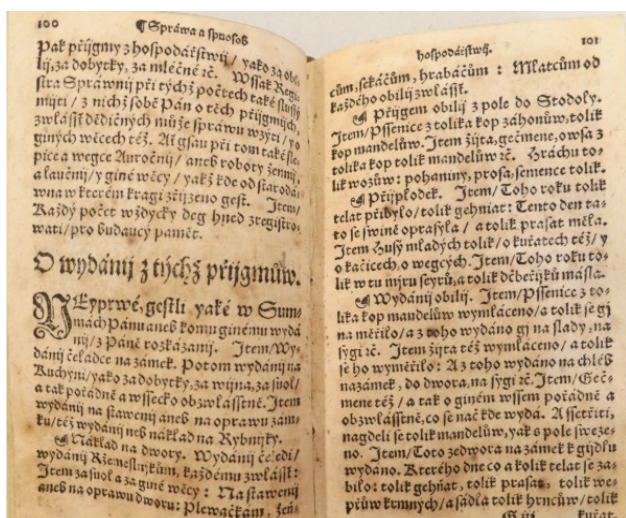 100
¶ Spráwa a spuosob
Pak přígmy z hospodářstwij / yako za obi-
lij, za dobytky, za mléčné ꝛč. Wssak Regi-
stra Spráwnij při týchž počtech také slussy
mijti / z nichž sobě Pán o těch přígmijch,
zwlásst dědičných může spráwu wzyti / y o
giných wěcech též. Ať gsau při tom také sle-
pice a wegce Auročnij / aneb roboty ženní,
a laučnij / y giné wěcy / yakž kde od staroda-
wna w kterém kragi zřijzeno gest. Item /
Každý počet wždycky deg hned zregistro-
wati / pro budaucý paměť.
O wydánij z týchž přijgmůw.
NEyprwé, gestli yaké w Sum-
mách Pánu aneb komu ginému wydá
nij / z Páně rozkazanij. Item / Wy-
dánij čeládce na zámek. Potom wydánij na
Kuchyni / yako za dobytky, za wijna, za suol /
a tak pořádně a wssecko obzwlásstně. Item
wydánij na stawenij aneb na oprawu zám-
ku / též wydánij neb náklad na Rybnijky.
¶ Náklad na dwory. Wydánij čeledi /
wydánij Ržemeslnijkům, každému zwlásst:
Item za suol a za giné wěcy : Na stawenij
aneb na oprawu dworu : Plewačkám, žen-
hospodářstwij.
101
cům, sekáčům, hrabáčům : Mlatcům od
každého obilij zwlásst.
¶ Přijgem obilij z pole do Stodoly.
Item / Pssenice z tolika kop záhonůw, tolik
kop mandelůw. Item žijta, gečmene, owsa z
tolika kop tolik mandelůw ꝛč. Hráchu to-
lik wozůw : pohaniny, prosa, semence tolik.
¶ Přijplodek. Item / Toho roku tolik
telat přibylo / tolik gehniat : Tento den ta-
to se swině oprasyla / a tolik prasat měla.
Item Husý mladých tolik / o kuřatech též / y
o kačicech, o wegcých. Item / Toho roku to-
lik w tu mjru seyrů, a tolik děbeřijků másla.
¶ Wydánij obilij. Item / Pssenice z to-
lika kop mandelůw wymláceno / a tolik se gj
na měřilo / a z toho wydáno gj na slady, na
sýgi ꝛč. Item žijta též wymláceno / a tolik
se ho wyměřilo : A z toho wydáno na chléb
na zámek, do dwora, na sýgi ꝛč. Item / Geč-
mene též / a tak o giném wssem pořádně a
obzwlásstně, co se nač kde wydá. A ssetřiti,
nagdeli se tolik mandelůw, yak s pole sweze-
no. Item / Toto ze dwora na zámek k gijdlu
wydáno. Kterého dne co a kolik telat se za-
bilo: tolik gehňat, tolik prasat, tolik we-
přůw krmných / a sádla tolik hrncůw / tolik
kuřat.